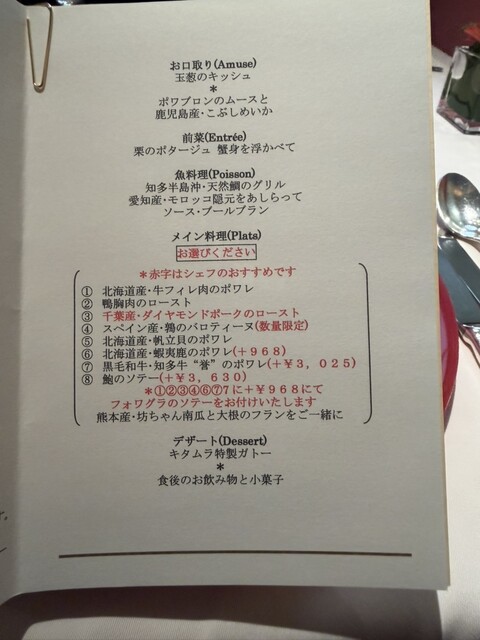 お口取り(Amuse)
玉葱のキッシュ
*
ポワブロンのムースと
鹿児島産・こぶしめいか
前菜(Entrée)
栗のポタージュ 蟹身を浮かべて
魚料理(Poisson)
知多半島沖・天然鯛のグリル
愛知産・モロッコ隠元をあしらって
ソース・ブールブラン
メイン料理(Plats)
お選びください
*赤字はシェフのおすすめです
① 北海道産・牛フィレ肉のポワレ
② 鴨胸肉のロースト
③ 千葉産・ダイヤモンドポークのロースト
④ スペイン産・鶉のバロティーヌ(数量限定)
⑤ 北海道産・帆立貝のポワレ
⑥ 北海道産・蝦夷鹿のポワレ(+968)
⑦ 黒毛和牛・知多牛“誉”のポワレ(+¥3,025)
⑧ 鮑のソテー(+¥3,630)
*①②③④⑥⑦7に+¥968にて
フォワグラのソテーをお付けいたします
熊本産・坊ちゃん南瓜と大根のフランをご一緒に
デザート(Dessert)
キタムラ特製ガトー
*
食後のお飲み物と小菓子